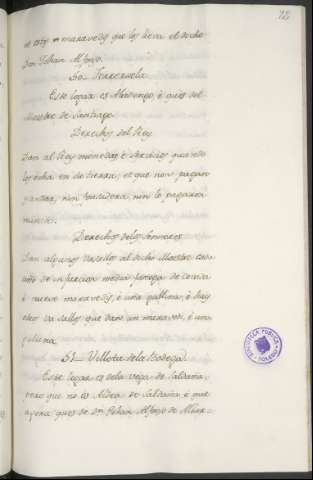 al Rey maravedis que los lieva el dicho
Don Johan Alfonso.
50. Terrezuela
Este logar es Abadengo, é quees del
Maestre de Santiago.
Derechos del Rey
Dan al Rey monedas é servicios quando
los echa en la tierra, et que non pagan
yantar, nin fonsadera, nin lo pagaron
nunca.
Derechos delos Sennores
Dan algunos vasallos al dicho Maestre cada
anno de infurcion media fanega de cevada
é nueve maravedis, é una gallina, é hay
otros vasallos que dan un maravedi, é una
gallina.
51. Villota dela Bodega.
Este logar es dela vega de Saldaña,
pero que no es Aldea de Saldaña, é que
agora, que es de Dn Johan Alfonso de Alvur-
BIBLIOTECA PUBLICA
TOLEDO